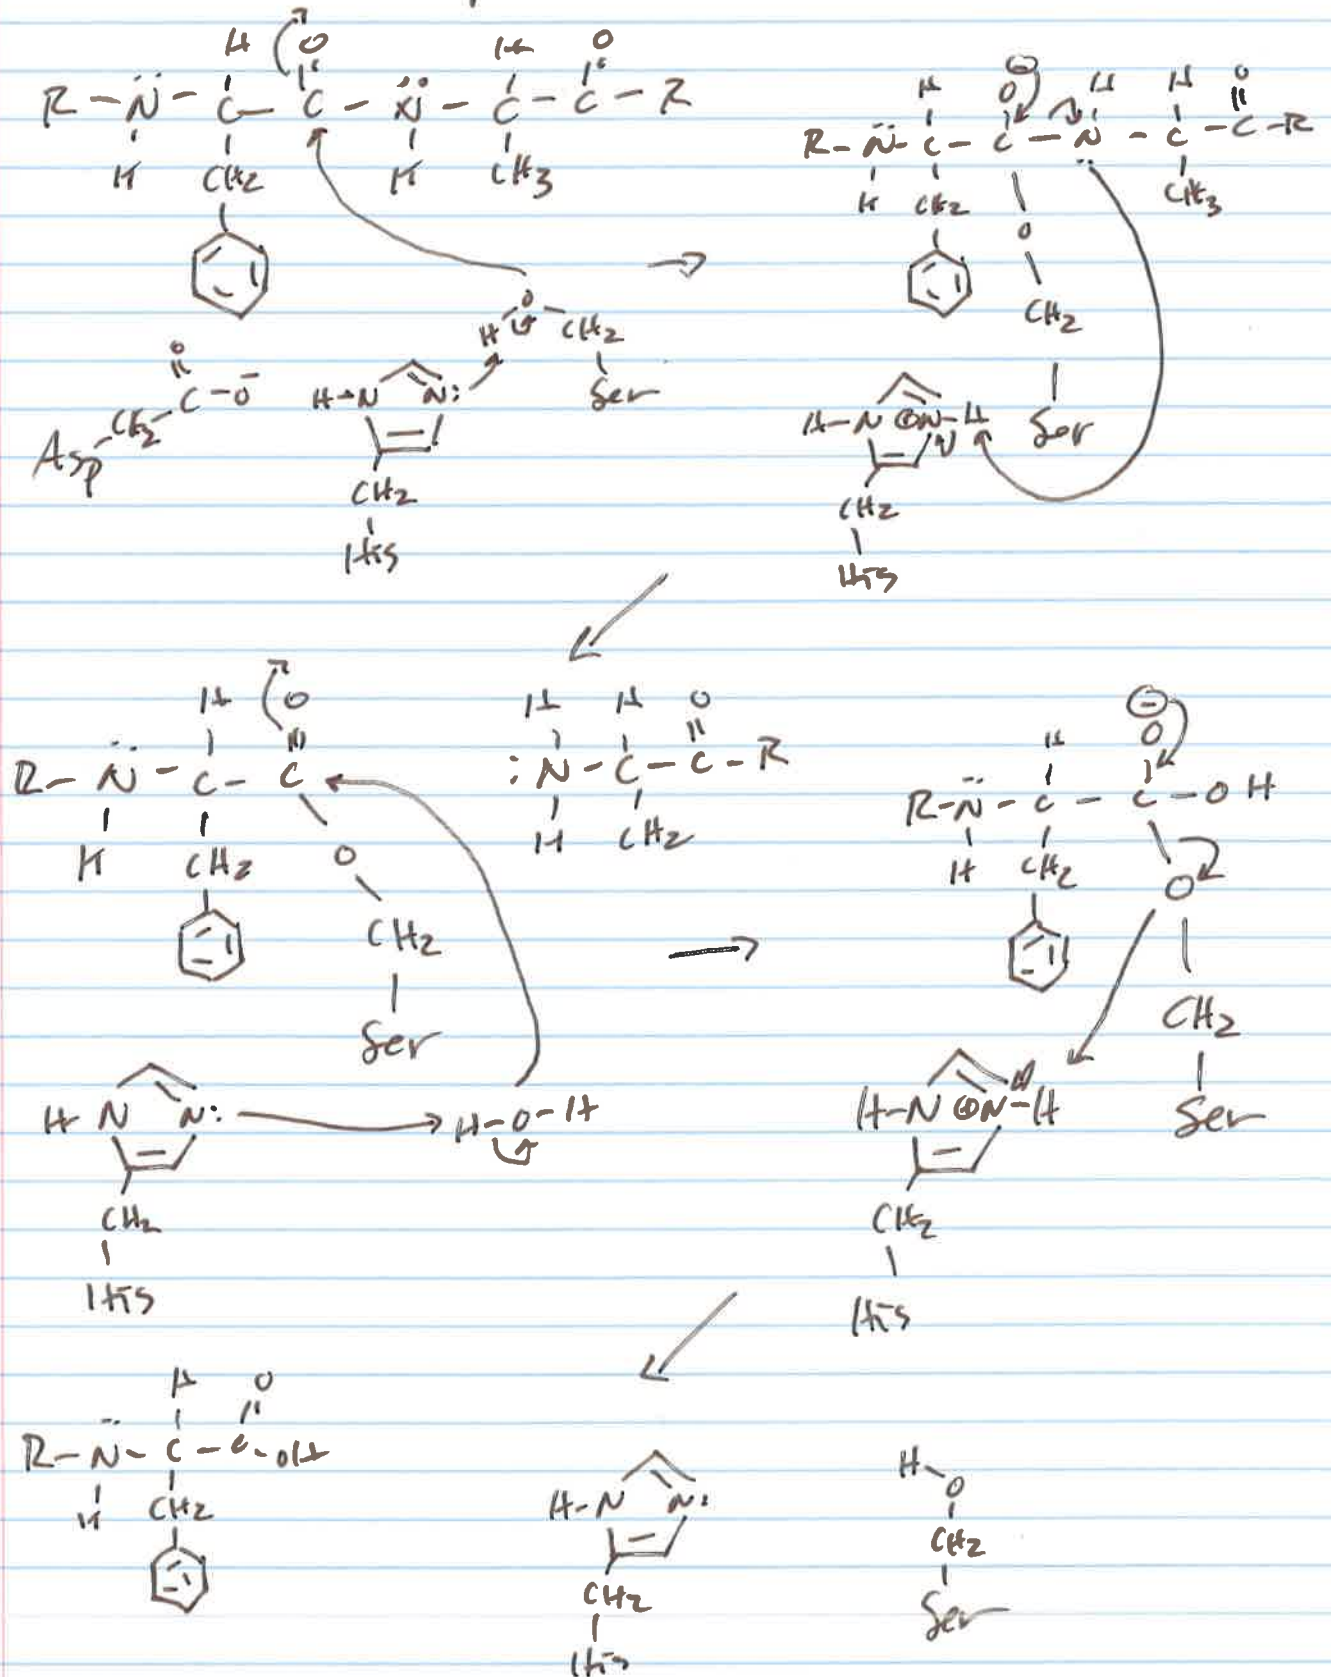 H O H O
R-N̈-C-C-N̈-C-C-R
H CH2 H CH3
H O⊖ H H O
R-N̈-C-C-N̈-C-C-R
H CH2 O CH3
CH2
Ser
H-O-CH2
Ser
O
Asp CH2-C-O⁻
H-N N:
CH2
His
H-N ⊕N-H
CH2
His
H O
R-N̈-C-C
H CH2 O
CH2
Ser
H H O
:N-C-C-R
H CH2
H O⊖
R-N̈-C-C-OH
H CH2 O
CH2
Ser
H N N:
CH2
His
H-O-H
H-N ⊕N-H
CH2
His
H O
R-N̈-C-C-OH
H CH2
H-N N:
CH2
His
H-O
CH2
Ser